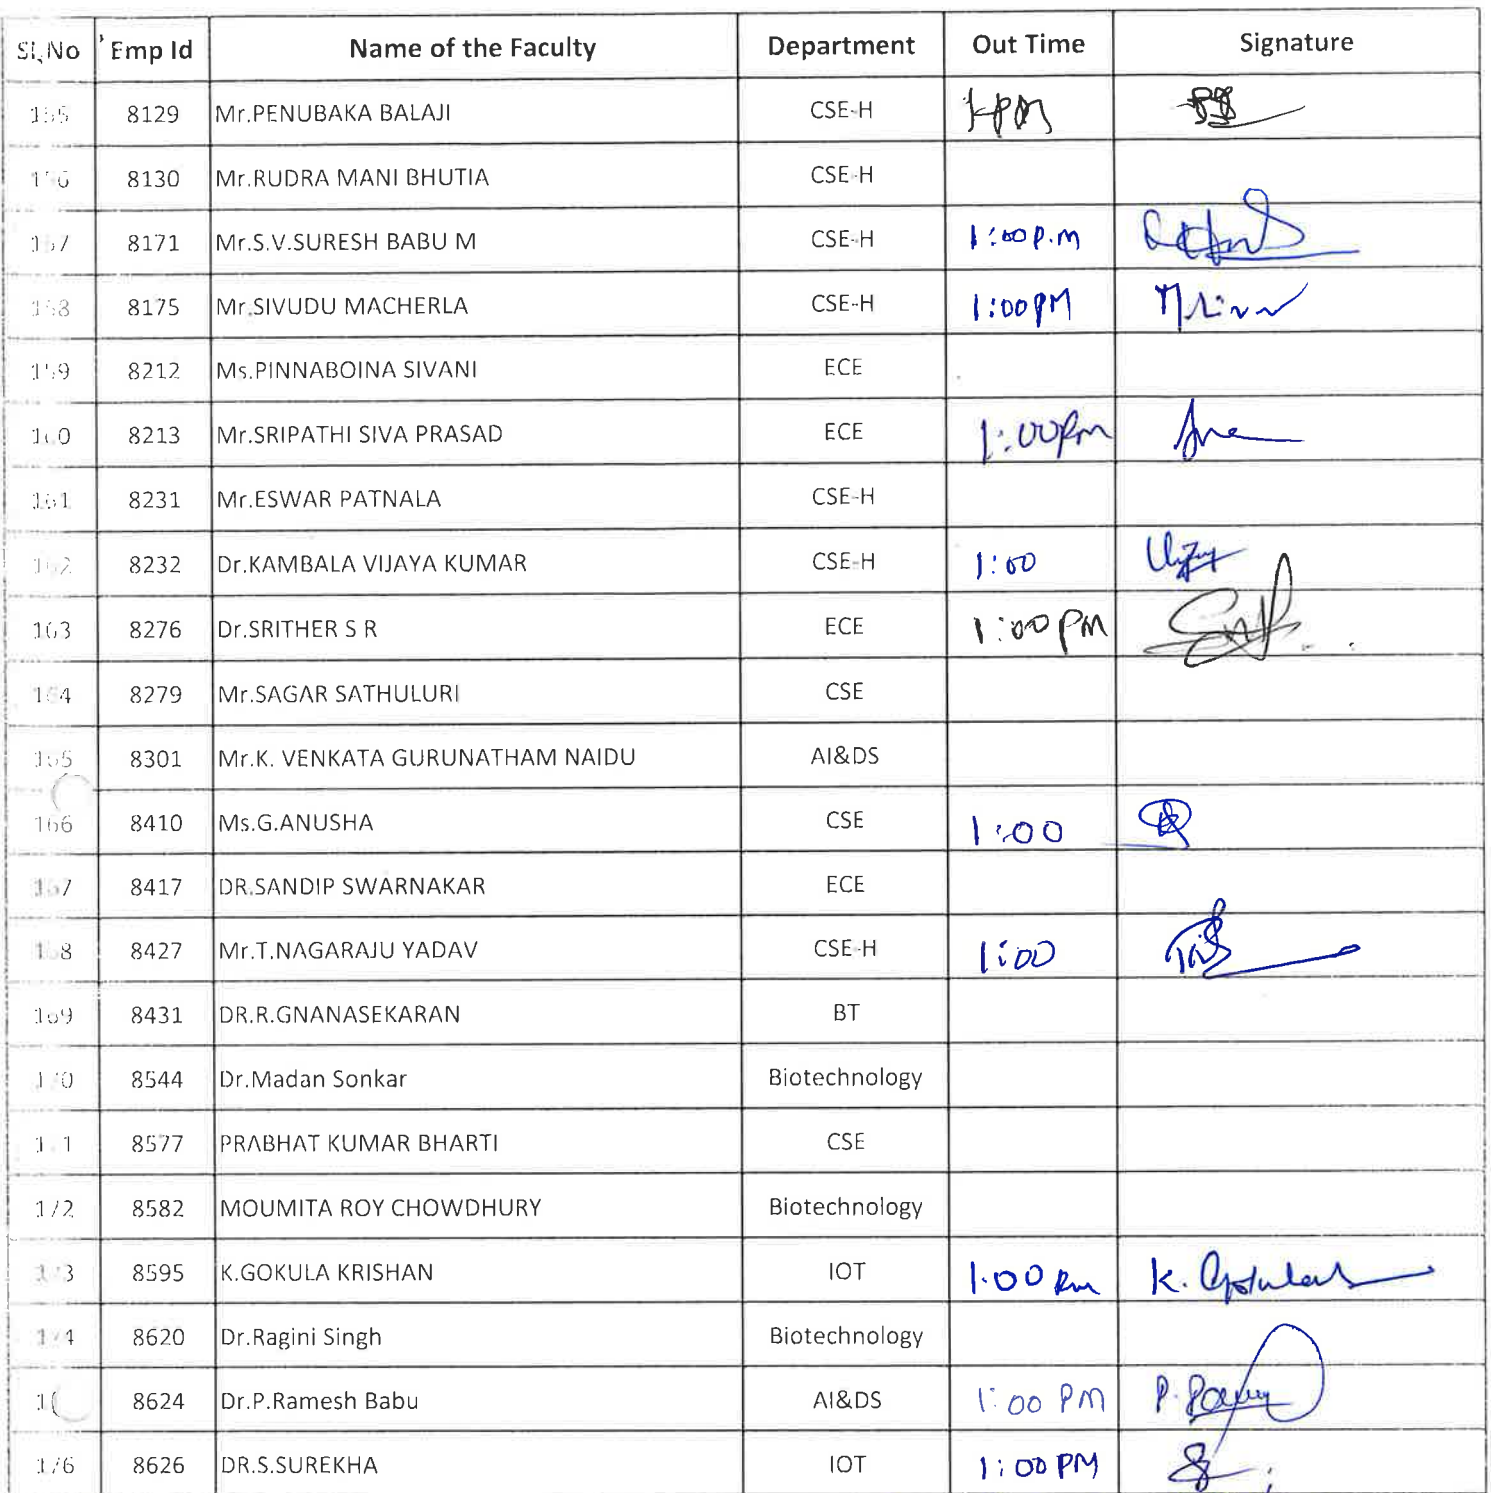 Sl.No Emp Id Name of the Faculty Department Out Time Signature
8129 Mr.PENUBAKA BALAJI CSE-H 1 PM
8130 Mr.RUDRA MANI BHUTIA CSE-H
8171 Mr.S.V.SURESH BABU M CSE-H 1:00 P.M
8175 Mr.SIVUDU MACHERLA CSE-H 1:00 PM
8212 Ms.PINNABOINA SIVANI ECE
160 8213 Mr.SRIPATHI SIVA PRASAD ECE 1:00 Pm
161 8231 Mr.ESWAR PATNALA CSE-H
162 8232 Dr.KAMBALA VIJAYA KUMAR CSE-H 1:00
163 8276 Dr.SRITHER S R ECE 1:00 PM
164 8279 Mr.SAGAR SATHULURI CSE
165 8301 Mr.K. VENKATA GURUNATHAM NAIDU AI&DS
166 8410 Ms.G.ANUSHA CSE 1:00
167 8417 DR.SANDIP SWARNAKAR ECE
168 8427 Mr.T.NAGARAJU YADAV CSE-H 1:00
169 8431 DR.R.GNANASEKARAN BT
170 8544 Dr.Madan Sonkar Biotechnology
8577 PRABHAT KUMAR BHARTI CSE
172 8582 MOUMITA ROY CHOWDHURY Biotechnology
173 8595 K.GOKULA KRISHAN IOT 1.00 Pm K.
174 8620 Dr.Ragini Singh Biotechnology
8624 Dr.P.Ramesh Babu AI&DS 1:00 PM P.
176 8626 DR.S.SUREKHA IOT 1:00 PM